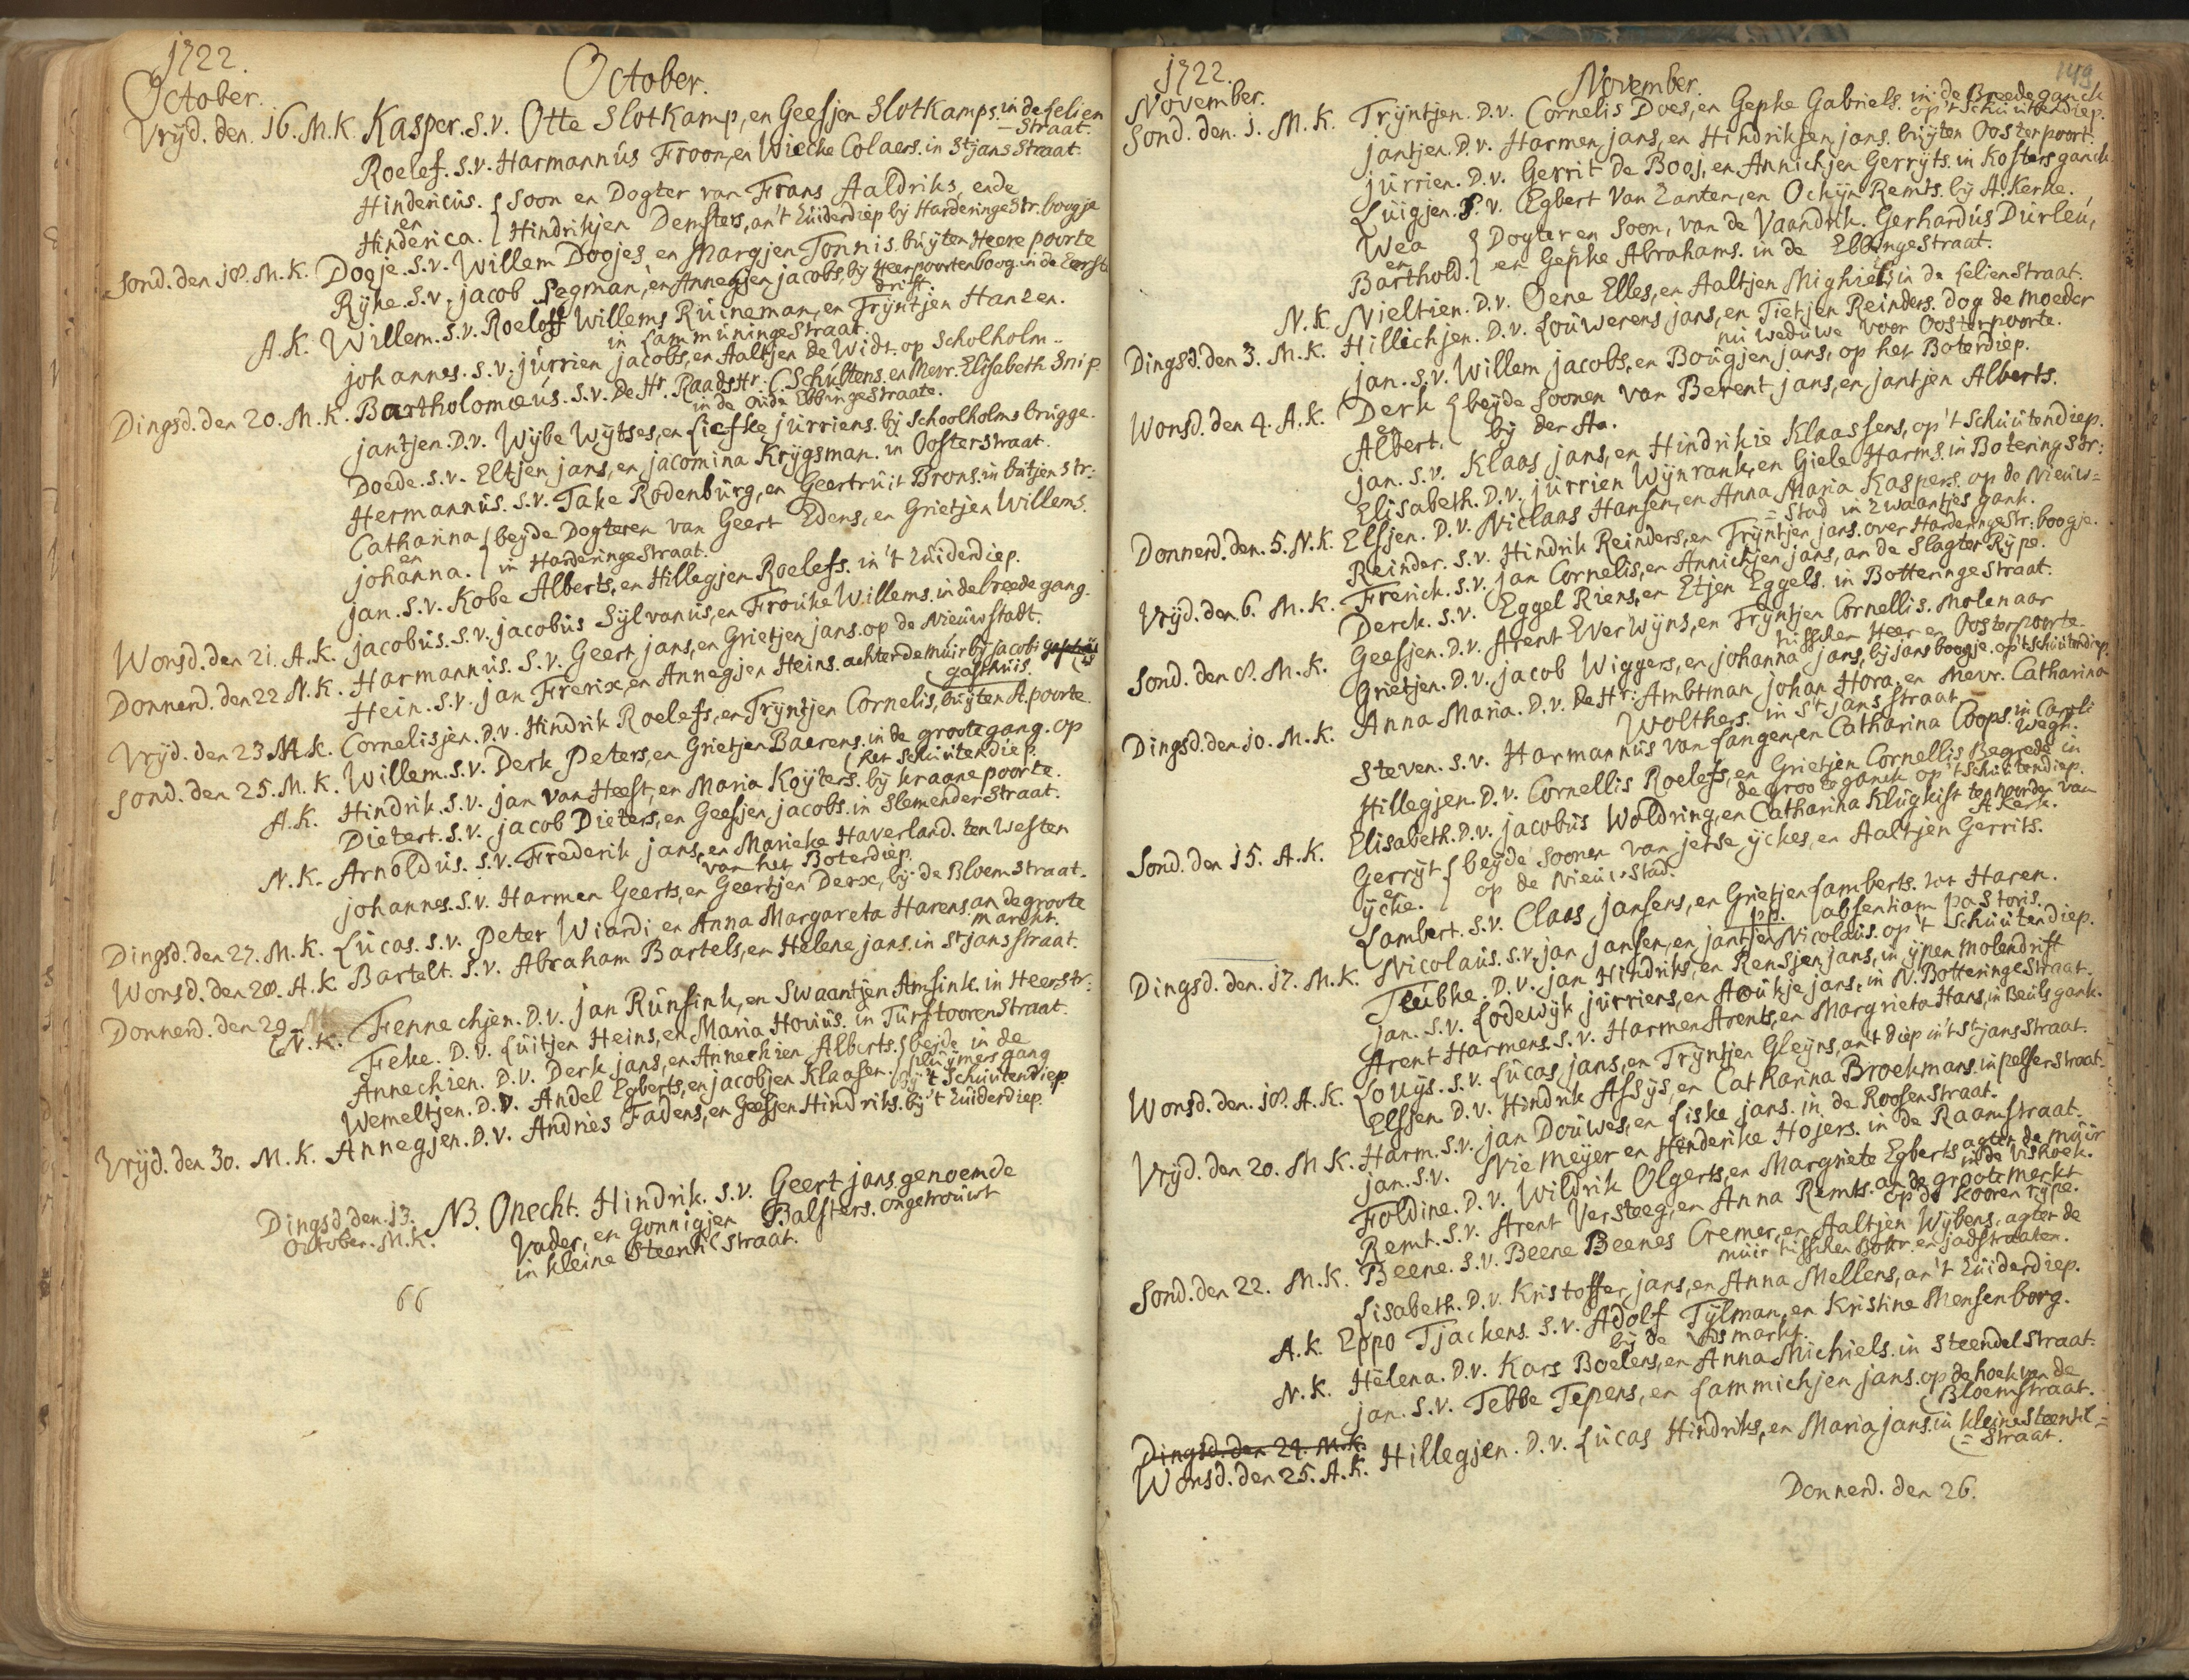 1722.
October.
October.
Vrijd. den. 16. M.K. Kasper. S.v. Otte Slotkamp, en Geesjen Slotkamps. in de Lelien
= Straat.
Roelef. S.v. Harmannus Froon, en Wiecke Colaers. in St jans Straat.
Hindericus. { Soon en Dogter van Frans Aaldriks, ende
en
Hinderica. { Hindrikjen Demsters, an't Zuiderdiep bij Harderinge Str. boogje
Sond. den 18. M.K. Dooje. S.v. Willem Doojes en Margjen Tonnis. buyten Heere poorte
Rijke. S.v. jacob Segman, en Annegjen jacobs, bij Heerpoorten boog. in de Eerste
drift.
A.K. Willem. S.v. Roeloff Willems Ruineman, en Trijntjen Hanzen.
in Lammuninge Straat.
johannes. S.v. jurrien jacobs, en Aaltjen de Widt. op Scholholm..
Dingsd. den 20. M.K. Bartholomæus. S.v. De Hr. Raads Hr. C. Schultens. en Mevr. Elisabeth Snip
in de oude Ebbinge Straate.
jantjen. D.v. Wybe Wytses, en Liefke jurriens. bij Schoolholms brugge.
Doede. S.v. Eltjen jans, en jacomina Krijgsman. in Oosterstraat.
Hermannus. S.v. Take Rodenburg, en Geertruit Brons. in butjen str:
Catharina { beyde Dogteren van Geert Edens, en Grietjen Willems.
en
johanna. { in Harderinge Straat.
jan. S.v. Kobe Alberts, en Hillegjen Roelefs. in 't Zuiderdiep.
Wonsd. den 21. A.K. jacobus. S.v. jacobus Sylvanus, en Frouke Willems. in de breede gang.
Donnerd. den 22 N.K. Harmannus. S.v. Geert jans, en Grietjen jans. op de Nieuwstadt.
Hein. S.v. Jan Frerix, en Annegjen Heins. achter de muir bij jacobi
gasthuis.
Vrijd. den 23 M.K. Cornelisjen. D.v. Hindrik Roelefs, en Trijntjen Cornelis, buyten A.poorte.
Sond. den 25. M.K. Willem. S.v. Derk Peters, en Grietjen Baerens. in de groote gang. op
het Schuitendiep.
A.K. Hindrik. S.v. jan van Heest, en Maria Koyters. bij kraane poorte.
Dietert. S.v. jacob Dieters, en Geesjen jacobs. in Slemender Straat.
N.K. Arnoldus. S.v. Frederik jans, en Marieke Haverland. ten Westen
van het Boterdiep.
johannes. S.v. Harmen Geerts, en Geertjen Derx, bij de Bloemstraat.
Dingsd. den 27. M.K. Lucas. S.v. Peter Wiardi en Anna Margareta Harens. an de groote
marckt.
Wonsd. den 28. A.K. Bartelt. S.v. Abraham Bartels, en Helene jans. in St jans straat.
Donnerd. den 29 N.K. Fennechjen. D.v. jan Runsink, en Swaantjen Amsink. in Heerstr:
Feke. D.v. Luitjen Heins, en Maria Hovius. in Turftooren Straat.
Annechien. D.v. Derk jans, en Annechien Alberts. { beide in de
pluijmers gang
Wemeltjen. D.v. Andel Egberts, en jacobjen Klaasen. { bij 't Schuitendiep.
Vrijd. den 30. M.K. Annegjen. D.v. Andries Fadens, en Geesjen Hindriks. bij 't Zuiderdiep.
Dingsd. den. 13.
October. M.K.
NB. Onecht. Hindrik. S.v. Geert jans genoemde
Vader, en Gonnigjen Balsters. ongetrouwt
in kleine Steentil Straat.
66
1722.
149
November.
November.
Sond. den. 1. M.K. Trijntjen. D.v. Cornelis Does, en Gepke Gabriels. in de Breede ganck
op 't Schuitendiep.
jantjen. D.v. Harmen jans, en Hindriksen jans. buyten Oosterpoort.
jurrien. D.v. Gerrit De Booj, en Annichjen Gerrijts. in Kosters ganck.
Luigjen. S.v. Egbert van Zanten, en Ockijn Remts. bij A.kerke.
Wea { Dogter en Soon, van de Vaandrik. Gerhardus Durleu,
en
Barthold. { en Gepke Abrahams. in de Ebbinge Straat.
N.K. Nieltien. D.v. Oene Elles, en Aaltjen Mighiels, in de Lelien Straat.
Dingsd. den 3. M.K. Hillichjen. D.v. Louwerens jans, en Tietjen Reinders. Dog de moeder
nu weduwe voor Oosterpoorte.
jan. S.v. Willem jacobs, en Bougjen jans, op het Boterdiep.
Wonsd. den 4. A.K. Derk { beyde Soonen van Berent jans, en jantjen Alberts.
en
Albert. { bij der Aa.
jan. S.v. Klaas jans, en Hindrikie Klaassens, op 't Schuitendiep.
Elisabeth. D.v. jurrien Wijnrank, en Giele Harms. in Botering str:
Donnerd. den. 5. N.K. Elsjen. D.v. Niclaas Hansen, en Anna Maria Kaspers. op de Nieuw=
= Stad in Zwaantjes gank.
Reinder. S.v. Hindrik Reinders, en Trijntjen jans. over Harderinge Str: boogje.
Vrijd. den 6. M.K. Frerick. S.v. jan Cornelis, en Annichjen jans, an de Slagter Rijpe.
Derck. S.v. Eggel Riens, en Etjen Eggels. in Botteringe Straat.
Sond. den 8. M.K. Geesjen. D.v. Arent Everwijns, en Trijntjen Cornellis. Molenaar
tusschen Heer en Oosterpoorte.
Grietjen. D.v. jacob Wiggers, en johanna jans, bij jans boogje. op 't Schuitendiep.
Dingsd. den 10. M.K. Anna Maria. D.v. De Hr: Ambtman johan Hora. en Mevr. Catharina
Wolthers. in St jans straat.
Steven. S.v. Harmannus van Langen, en Catharina Coops. in Caroli
Wegh.
Hillegjen. D.v. Cornellis Roelefs, en Grietjen Cornellis Begrede in
de groote ganck op 't Schuitendiep.
Sond. den 15. A.K. Elisabeth. D.v. jacobus Woldring, en Catharina Klugkist ten noorden van
A.Kerk.
Gerryt { beyde Soonen van jetse ijckes, en Aaltjen Gerrits.
en
ijcke. { op de Nieuw Stad.
Lambert. S.v. Claas Jansens, en Grietjen Lamberts. tot Haren.
absentiam pastoris.
Dingsd. den. 17. M.K. Nicolaus. S.v. jan jansen, en jantjen Nicolaus. op 't Schuitendiep.
Teubke. D.v. jan Hindriks, en Rensjen jans, in ijpen Molendrift
jan. S.v. Lodewijk jurriens, en Aoukje jans, in N. Botteringe Straat.
Arent Harmens. S.v. Harmen Arents, en Margrieta Hans, in Beuls gank.
Wonsd. den. 18. A.K. Louijs. S.v. Lucas jans, en Trijntjen Gleijns, an't diep in't St jans Straat.
Elssen. D.v. Hindrik Assijs, en Catharina Broekmans. in pelser straat.
Vrijd. den 20. M K. Harm. S.v. jan Douwes, en Liske jans. in de Roosen Straat.
jan. S.v. Niemeyer en Henderike Hosers. in de Raamstraat.
Foldine. D.v. Wildrik Olgerts, en Margriete Egberts agter de muir
in de Vishoek.
Remt. S.v. Arent Versteeg, en Anna Remts. an de groote merkt
op de kooren rijpe.
Sond. den 22. M.K. Beene. S.v. Beene Beenes Cremer, en Aaltjen Wybens, agter de
muir tusschen Bottr. en jadstraaten.
Lisabeth. D.v. Kristoffer jans, en Anna Mellens, an 't Zuiderdiep.
A.K. Eppo Tjackens. S.v. Adolf Tylman, en Kristine Mensenborg.
bij de Vismarkt.
N.K. Helena. D.v. Kars Boelens, en Anna Michiels. in Steendel Straat.
jan. S.v. Tebbe Tepens, en Lammichjen jans. op de hoek van de
Bloemstraat.
Dingsd. den 24. M.K.
Wonsd. den 25. A.K. Hillegjen. D.v. Lucas Hindriks, en Maria jans. in kleine Steentil=
= Straat.
Donnerd. den 26.